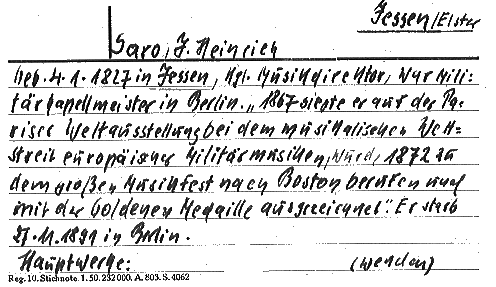 Jessen/Elster
Saro, J. Heinrich
Geb. 4.1.1827 in Jessen, Kgl. Musikdirektor, war Mili-
tärkapellmeister in Berlin. „1867 siegte er auf der Pa-
riser Weltausstellung bei dem musikalischen Wett-
streit europäischer Militärmusiken, wurd, 1872 zu
dem großen Musikfest nach Boston berufen und
mit der Goldenen Medaille ausgezeichnet". Er starb
27.11.1891 in Berlin.
Hauptwerke: (wenden)
Reg. 10. Stichnote. 1. 50. 232000. A. 803. S. 4062